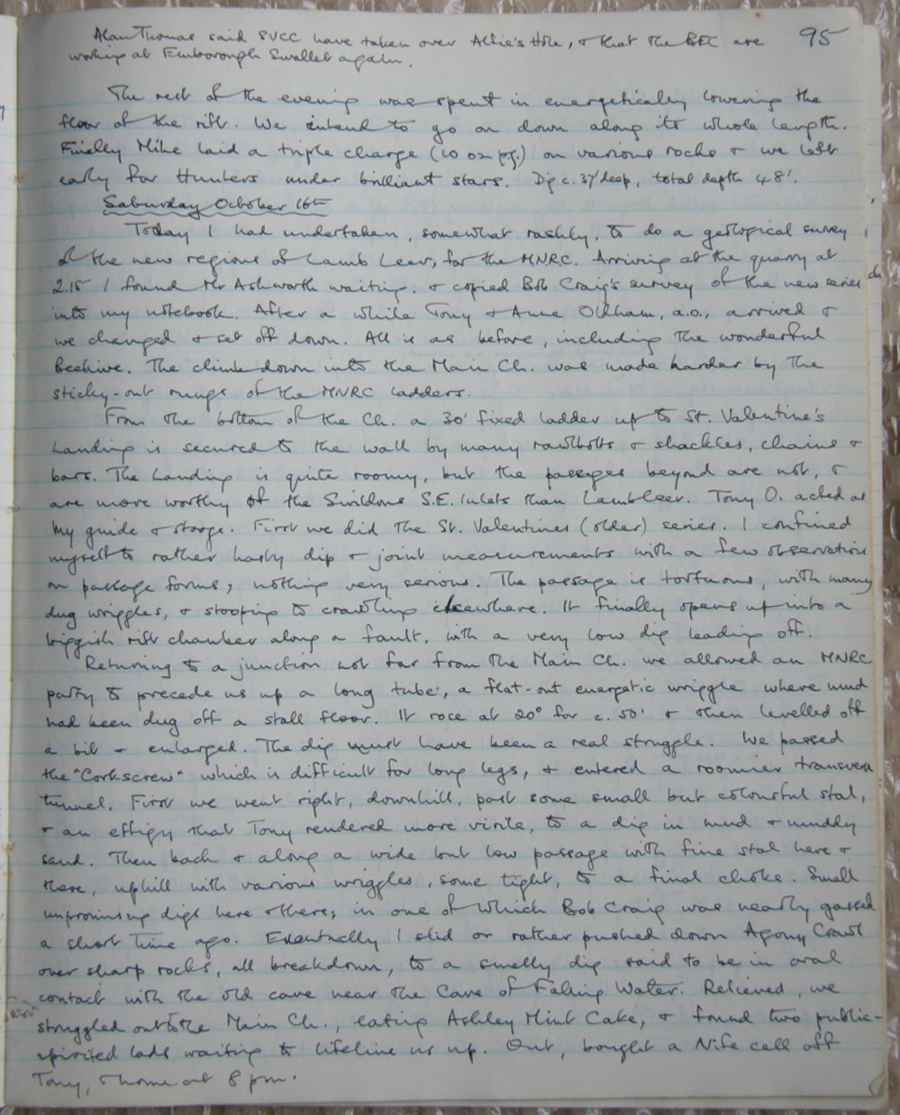 Alan Thomas said SVCC have taken over Alfie's Hole, & that the BEC are 95
working at Emborough Swallet again.
The rest of the evening was spent in energetically lowering the
floor of the rift. We intend to go on down along its whole length.
Finally Mike laid a triple charge (10 oz p.g.) on various rocks & we left
early for Hunters under brilliant stars. Dig c. 37' deep, total depth 48'.
Saturday October 16th
Today I had undertaken, somewhat rashly, to do a geological survey
of the new regions of Lamb Leer, for the MNRC. Arriving at the quarry at
2.15 I found Mr Ashworth waiting, & copied Bob Craig's survey of the new series
into my notebook. After a while Tony & Anne Oldham, a.o., arrived &
we changed & set off down. All is as before, including the wonderful
Beehive. The climb down into the Main Ch. was made harder by the
sticky-out rungs of the MNRC ladders.
From the bottom of the Ch. a 30' fixed ladder up to St. Valentine's
Landing is secured to the wall by many rawlbolts & shackles, chains &
bars. The Landing is quite roomy, but the passages beyond are not, &
are more worthy of the Swildons S.E. Inlets than Lamb Leer. Tony O. acted as
my guide & storge. First we did the St. Valentines (older) series. I confined
myself to rather hasty dip & joint measurements with a few observations
on passage forms; nothing very serious. The passage is tortuous, with many
dug wriggles, & stooping to crawling elsewhere. It finally opens up into a
biggish rift chamber along a fault, with a very low dig leading off.
Returning to a junction not far from the Main Ch. we allowed an MNRC
party to precede us up a long tube, a flat-out energetic wriggle where mud
had been dug off a stal floor. It rose at 20° for c. 50' & then levelled off
a bit & enlarged. The dig must have been a real struggle. We passed
the "Corkscrew" which is difficult for long legs, & entered a roomier transverse
tunnel. First we went right, downhill, past some small but colourful stal,
& an effigy that Tony rendered more virile, to a dig in mud & muddy
sand. Then back & along a wide but low passage with fine stal here &
there, uphill with various wriggles, some tight, to a final choke. Small
unpromising digs here & there; in one of which Bob Craig was nearly gassed
a short time ago. Eventually I slid or rather pushed down Agony Crawl
over sharp rocks, all breakdown, to a smelly dig said to be in oral
contact with the old cave near the Cave of Falling Water. Relieved, we
struggled out to the Main Ch., eating Ashley Mint Cake, & found two public-
spirited lads waiting to lifeline us up. Out, bought a Nife cell off
Tony, & home at 8 pm.